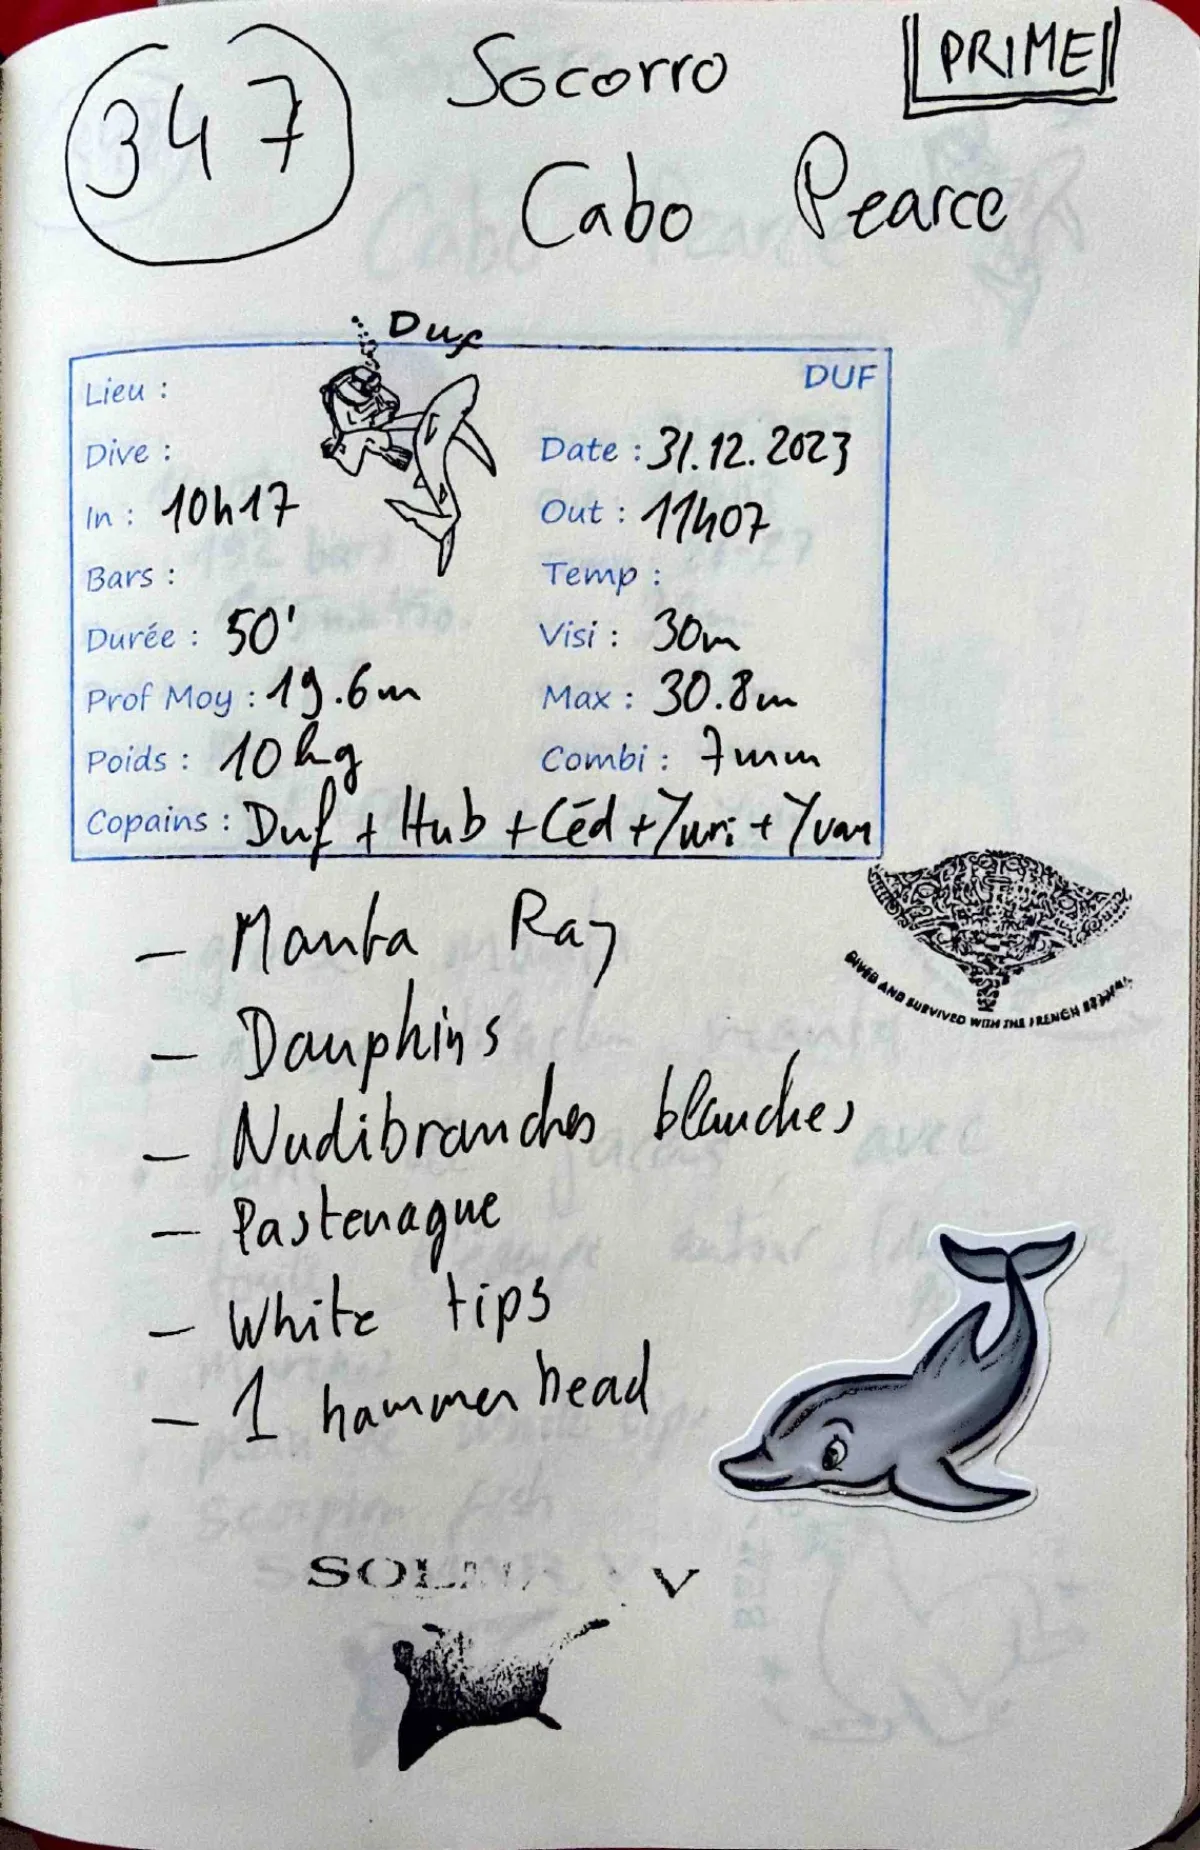 347
Socorro
PRIME
Cabo Pearce
Duf
DUF
Lieu :
Dive :
Date : 31.12.2023
In : 10h17
Out : 11h07
Bars :
Temp :
Durée : 50'
Visi : 30m
Prof Moy : 19.6m
Max : 30.8m
Poids : 10 kg
Combi : 7mm
Copains : Duf + Hub + Céd + Yuri + Yvan
– Manta Ray
DIVED AND SURVIVED WITH THE FRENCH
– Dauphins
– Nudibranches blanches
– Pastenague
– White tips
– 1 hammerhead
V